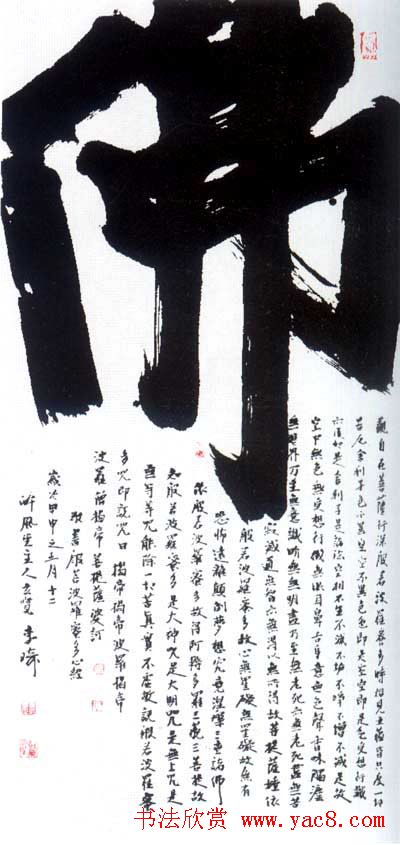 佛
觀自在菩薩行深般若波羅蜜多時照見五蘊皆空度一切
苦厄舍利子色不異空空不異色色即是空空即是色受想行識
亦復如是舍利子是諸法空相不生不滅不垢不淨不增不減是故
空中無色無受想行識無眼耳鼻舌身意無色聲香味觸法
無眼界乃至無意識界無無明盡乃至無老死亦無老死盡無苦
寂滅道無智亦無得以無所得故菩提薩埵依
般若波羅蜜多故心無罣礙無罣礙故無有
恐怖遠離顛倒夢想究竟涅槃三世諸佛
依般若波羅蜜多故得阿耨多羅三藐三菩提故
知般若波羅蜜多是大神咒是大明咒是無上咒是
無等等咒能除一切苦真實不虛故說般若波羅蜜
多咒即說咒曰揭帝揭帝波羅揭帝
波羅僧揭帝菩提薩婆訶
敬書般若波羅蜜多心經
歲次甲申之五月十二
風主人李
书法欣赏 www.yac8.com